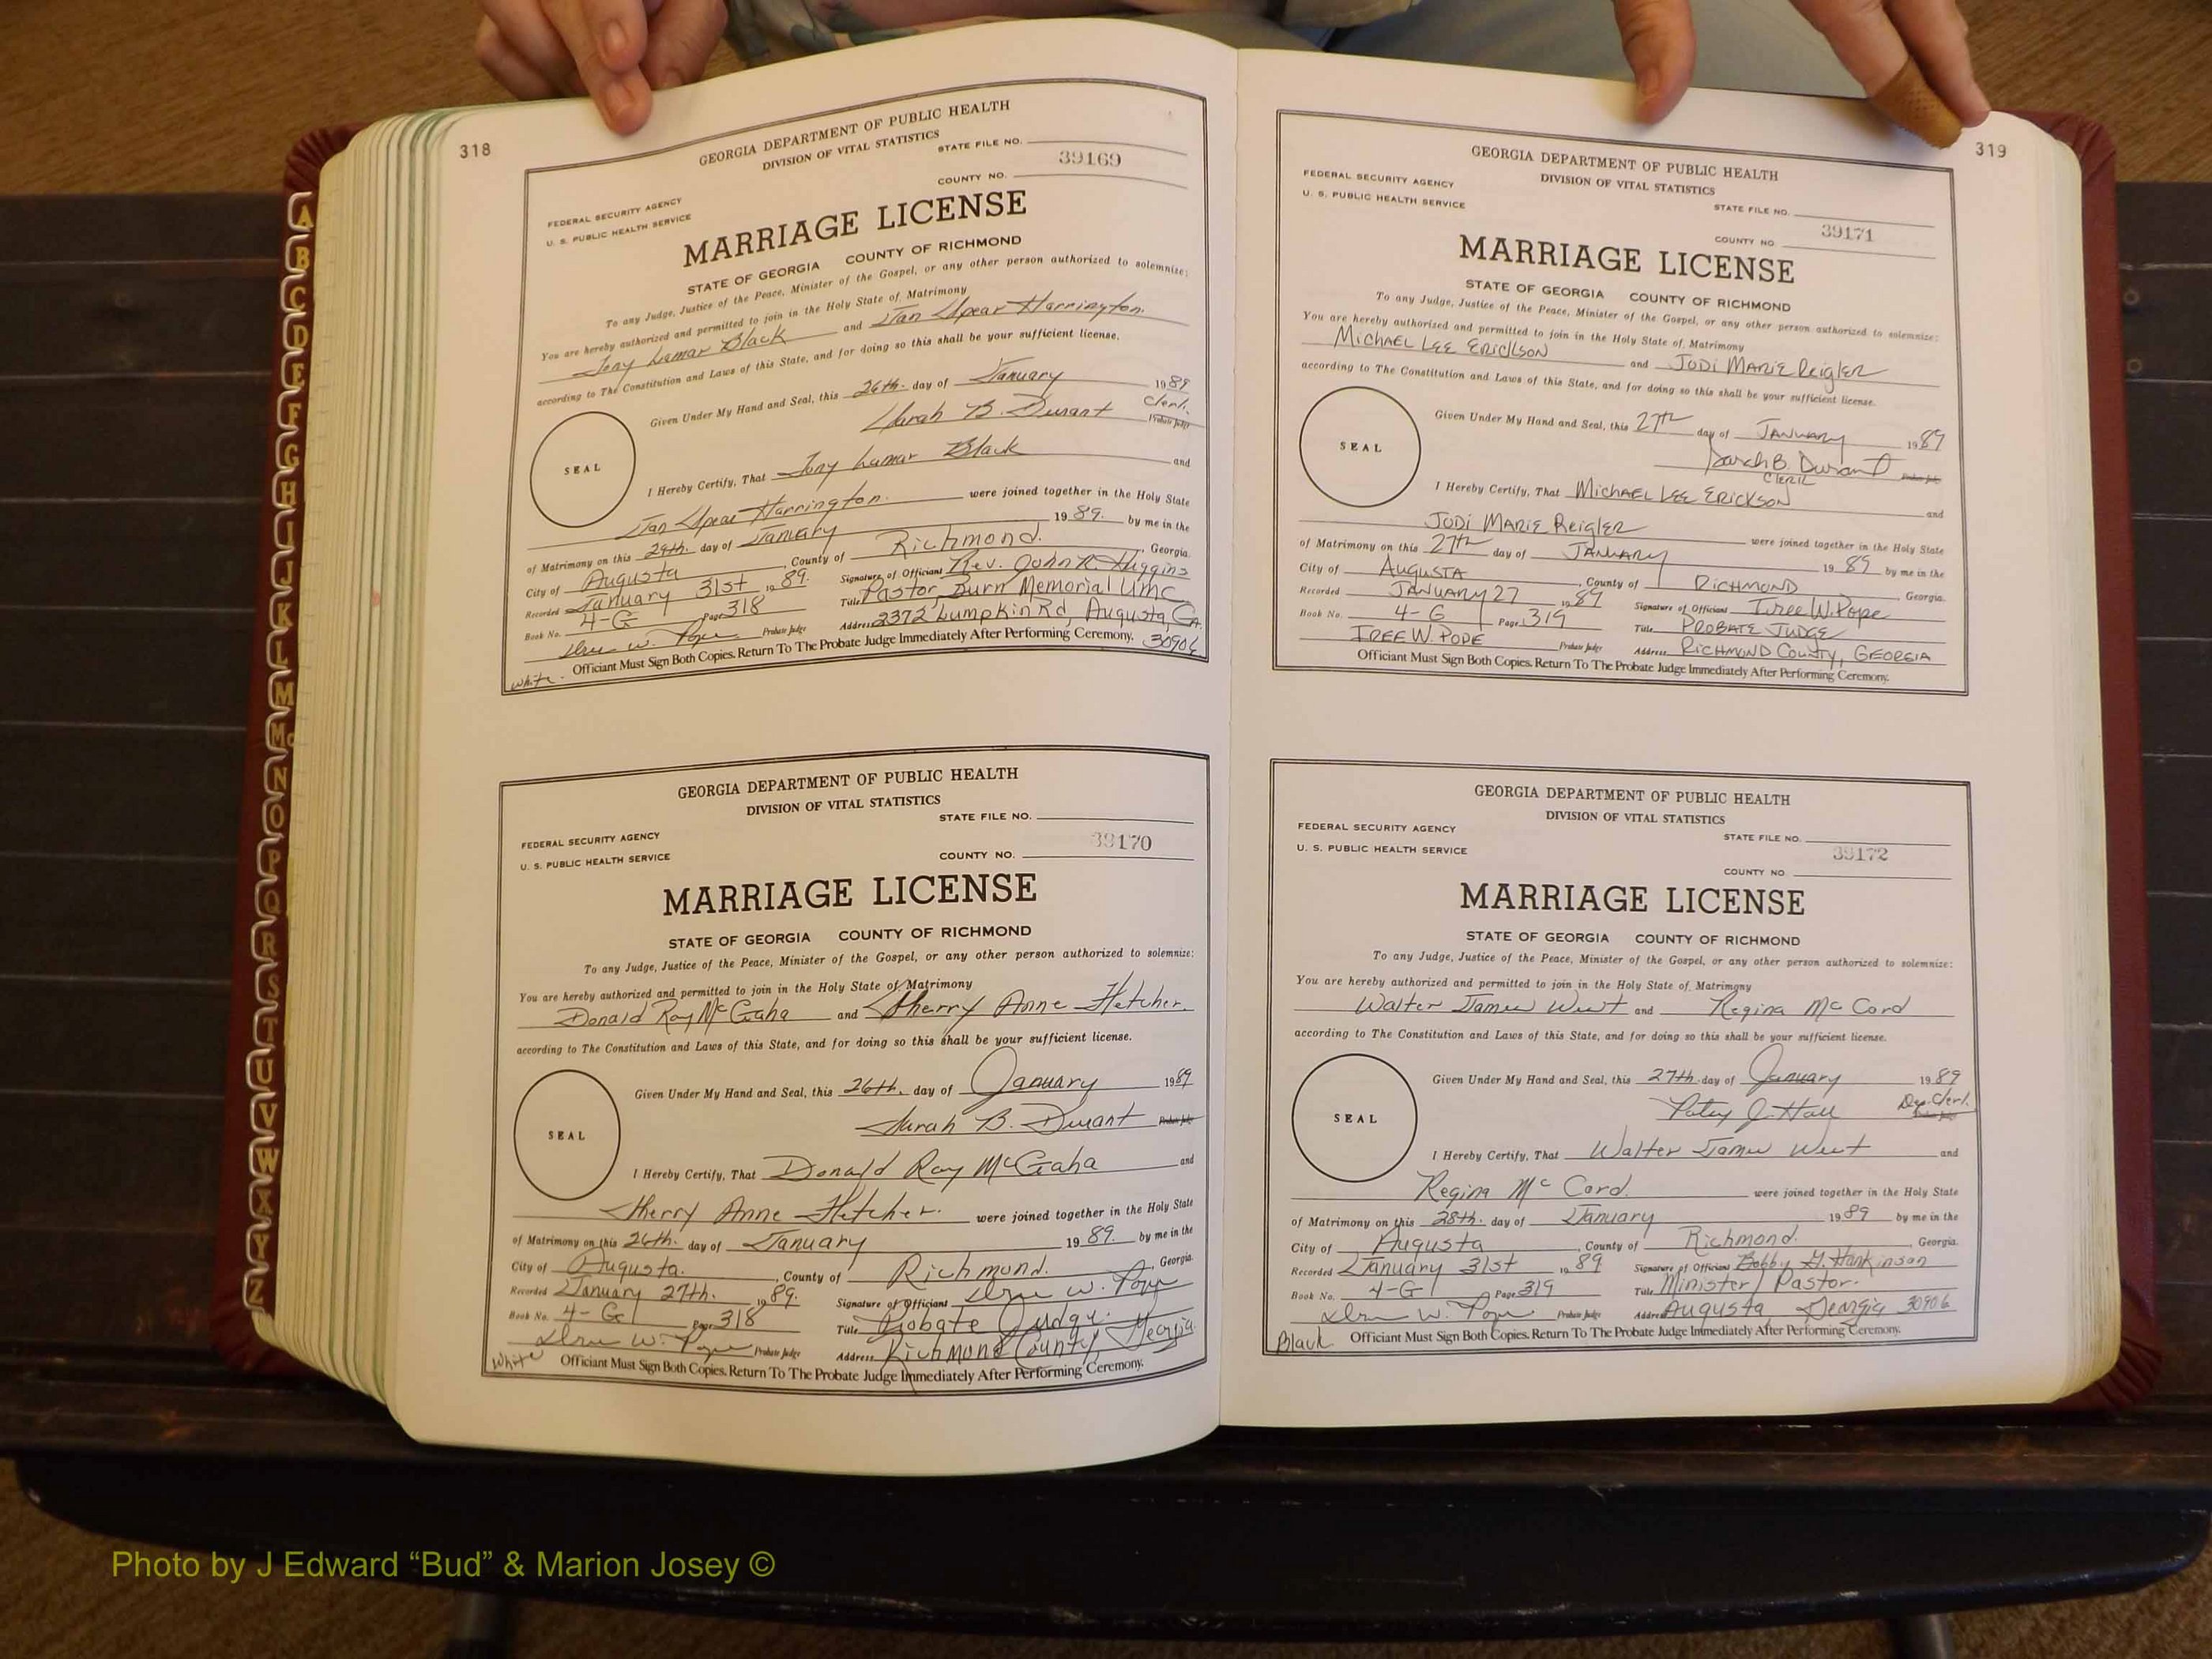 318
GEORGIA DEPARTMENT OF PUBLIC HEALTH
DIVISION OF VITAL STATISTICS
STATE FILE NO.
39169
COUNTY NO.
FEDERAL SECURITY AGENCY
U. S. PUBLIC HEALTH SERVICE
MARRIAGE LICENSE
STATE OF GEORGIA COUNTY OF RICHMOND
To any Judge, Justice of the Peace, Minister of the Gospel, or any other person authorized to solemnize:
You are hereby authorized and permitted to join in the Holy State of Matrimony
Tony Lamar Black and Jan Spear Harrington.
according to The Constitution and Laws of this State, and for doing so this shall be your sufficient license.
Given Under My Hand and Seal, this 26th. day of January 1989
Sarah B. Durant Clerk.
Probate Judge
SEAL
I Hereby Certify, That Tony Lamar Black and
Jan Spear Harrington. were joined together in the Holy State
of Matrimony on this 29th. day of January 19 89. by me in the
City of Augusta, County of Richmond. Georgia.
Recorded January 31st 19 89. Signature of Officiant Rev. John R. Higgins
Book No. 4-G Page 318 Title Pastor, Burn Memorial UMC
Probate Judge Address 2372 Lumpkin Rd, Augusta, Ga.
30906
Officiant Must Sign Both Copies. Return To The Probate Judge Immediately After Performing Ceremony.
White.
GEORGIA DEPARTMENT OF PUBLIC HEALTH
DIVISION OF VITAL STATISTICS
STATE FILE NO.
39170
FEDERAL SECURITY AGENCY
U. S. PUBLIC HEALTH SERVICE
COUNTY NO.
MARRIAGE LICENSE
STATE OF GEORGIA COUNTY OF RICHMOND
To any Judge, Justice of the Peace, Minister of the Gospel, or any other person authorized to solemnize:
You are hereby authorized and permitted to join in the Holy State of Matrimony
Donald Ray McGaha and Sherry Anne Fletcher.
according to The Constitution and Laws of this State, and for doing so this shall be your sufficient license.
Given Under My Hand and Seal, this 26th. day of January 1989
Sarah B. Durant Probate Judge
SEAL
I Hereby Certify, That Donald Ray McGaha and
Sherry Anne Fletcher. were joined together in the Holy State
of Matrimony on this 26th. day of January 19 89. by me in the
City of Augusta., County of Richmond. Georgia.
Recorded January 27th. 19 89. Signature of Officiant Iree W. Pope
Book No. 4-G Page 318 Title Probate Judge.
Iree W. Pope Probate Judge Address Richmond County, Georgia.
White Officiant Must Sign Both Copies. Return To The Probate Judge Immediately After Performing Ceremony.
319
GEORGIA DEPARTMENT OF PUBLIC HEALTH
DIVISION OF VITAL STATISTICS
FEDERAL SECURITY AGENCY
U. S. PUBLIC HEALTH SERVICE
STATE FILE NO.
39171
COUNTY NO
MARRIAGE LICENSE
STATE OF GEORGIA COUNTY OF RICHMOND
To any Judge, Justice of the Peace, Minister of the Gospel, or any other person authorized to solemnize:
You are hereby authorized and permitted to join in the Holy State of Matrimony
Michael Lee Erickson and Jodi Marie Reigler
according to The Constitution and Laws of this State, and for doing so this shall be your sufficient license.
Given Under My Hand and Seal, this 27th day of January 1989
Sarah B. Durant
Clerk Probate Judge
SEAL
I Hereby Certify, That Michael Lee Erickson and
Jodi Marie Reigler were joined together in the Holy State
of Matrimony on this 27th day of January 19 89 by me in the
City of Augusta, County of Richmond, Georgia.
Recorded January 27 19 89 Signature of Officiant Iree W. Pope
Book No. 4-G Page 319 Title Probate Judge
Iree W. Pope Probate Judge Address Richmond County, Georgia
Officiant Must Sign Both Copies. Return To The Probate Judge Immediately After Performing Ceremony.
GEORGIA DEPARTMENT OF PUBLIC HEALTH
DIVISION OF VITAL STATISTICS
FEDERAL SECURITY AGENCY
STATE FILE NO.
U. S. PUBLIC HEALTH SERVICE
39172
COUNTY NO
MARRIAGE LICENSE
STATE OF GEORGIA COUNTY OF RICHMOND
To any Judge, Justice of the Peace, Minister of the Gospel, or any other person authorized to solemnize:
You are hereby authorized and permitted to join in the Holy State of Matrimony
Walter James West and Regina McCord
according to The Constitution and Laws of this State, and for doing so this shall be your sufficient license.
Given Under My Hand and Seal, this 27th. day of January 19 89
Patsy J. Hall Dep. Clerk.
Probate Judge
SEAL
I Hereby Certify, That Walter James West and
Regina McCord. were joined together in the Holy State
of Matrimony on this 28th. day of January 19 89 by me in the
City of Augusta, County of Richmond. Georgia.
Recorded January 31st 19 89 Signature of Officiant Bobby G. Hankinson
Book No. 4-G Page 319 Title Minister/Pastor.
Iree W. Pope Probate Judge Address Augusta Georgia 30906
Black. Officiant Must Sign Both Copies. Return To The Probate Judge Immediately After Performing Ceremony.
A
B
C
D
E
F
G
H
I
J
K
L
M
Mc
N
O
P
Q
R
S
T
U
V
W
X
Y
Z
Photo by J Edward “Bud” & Marion Josey ©